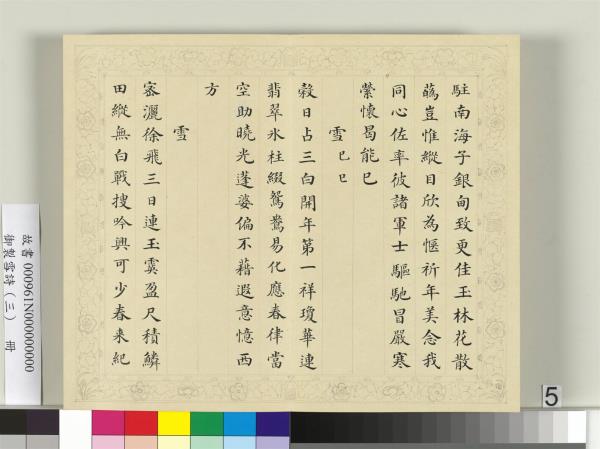 駐南海子銀甸致更佳玉林花散
蘤豈惟縱目欣為愜祈年美念我
同心佐率彼諸軍士驅馳冒嚴寒
縈懷曷能已
雪 己巳
穀日占三白開年第一祥瓊華連
翡翠氷柱綴鴛鴦易化應春律當
空助曉光蓬婆偏不藉遐意憶西
方
雪
密灑徐飛三日連玉霙盈尺積鱗
田縱無白戰搜吟興可少春來紀
故書 000961N000000000
御製雪詩(三) 冊
5